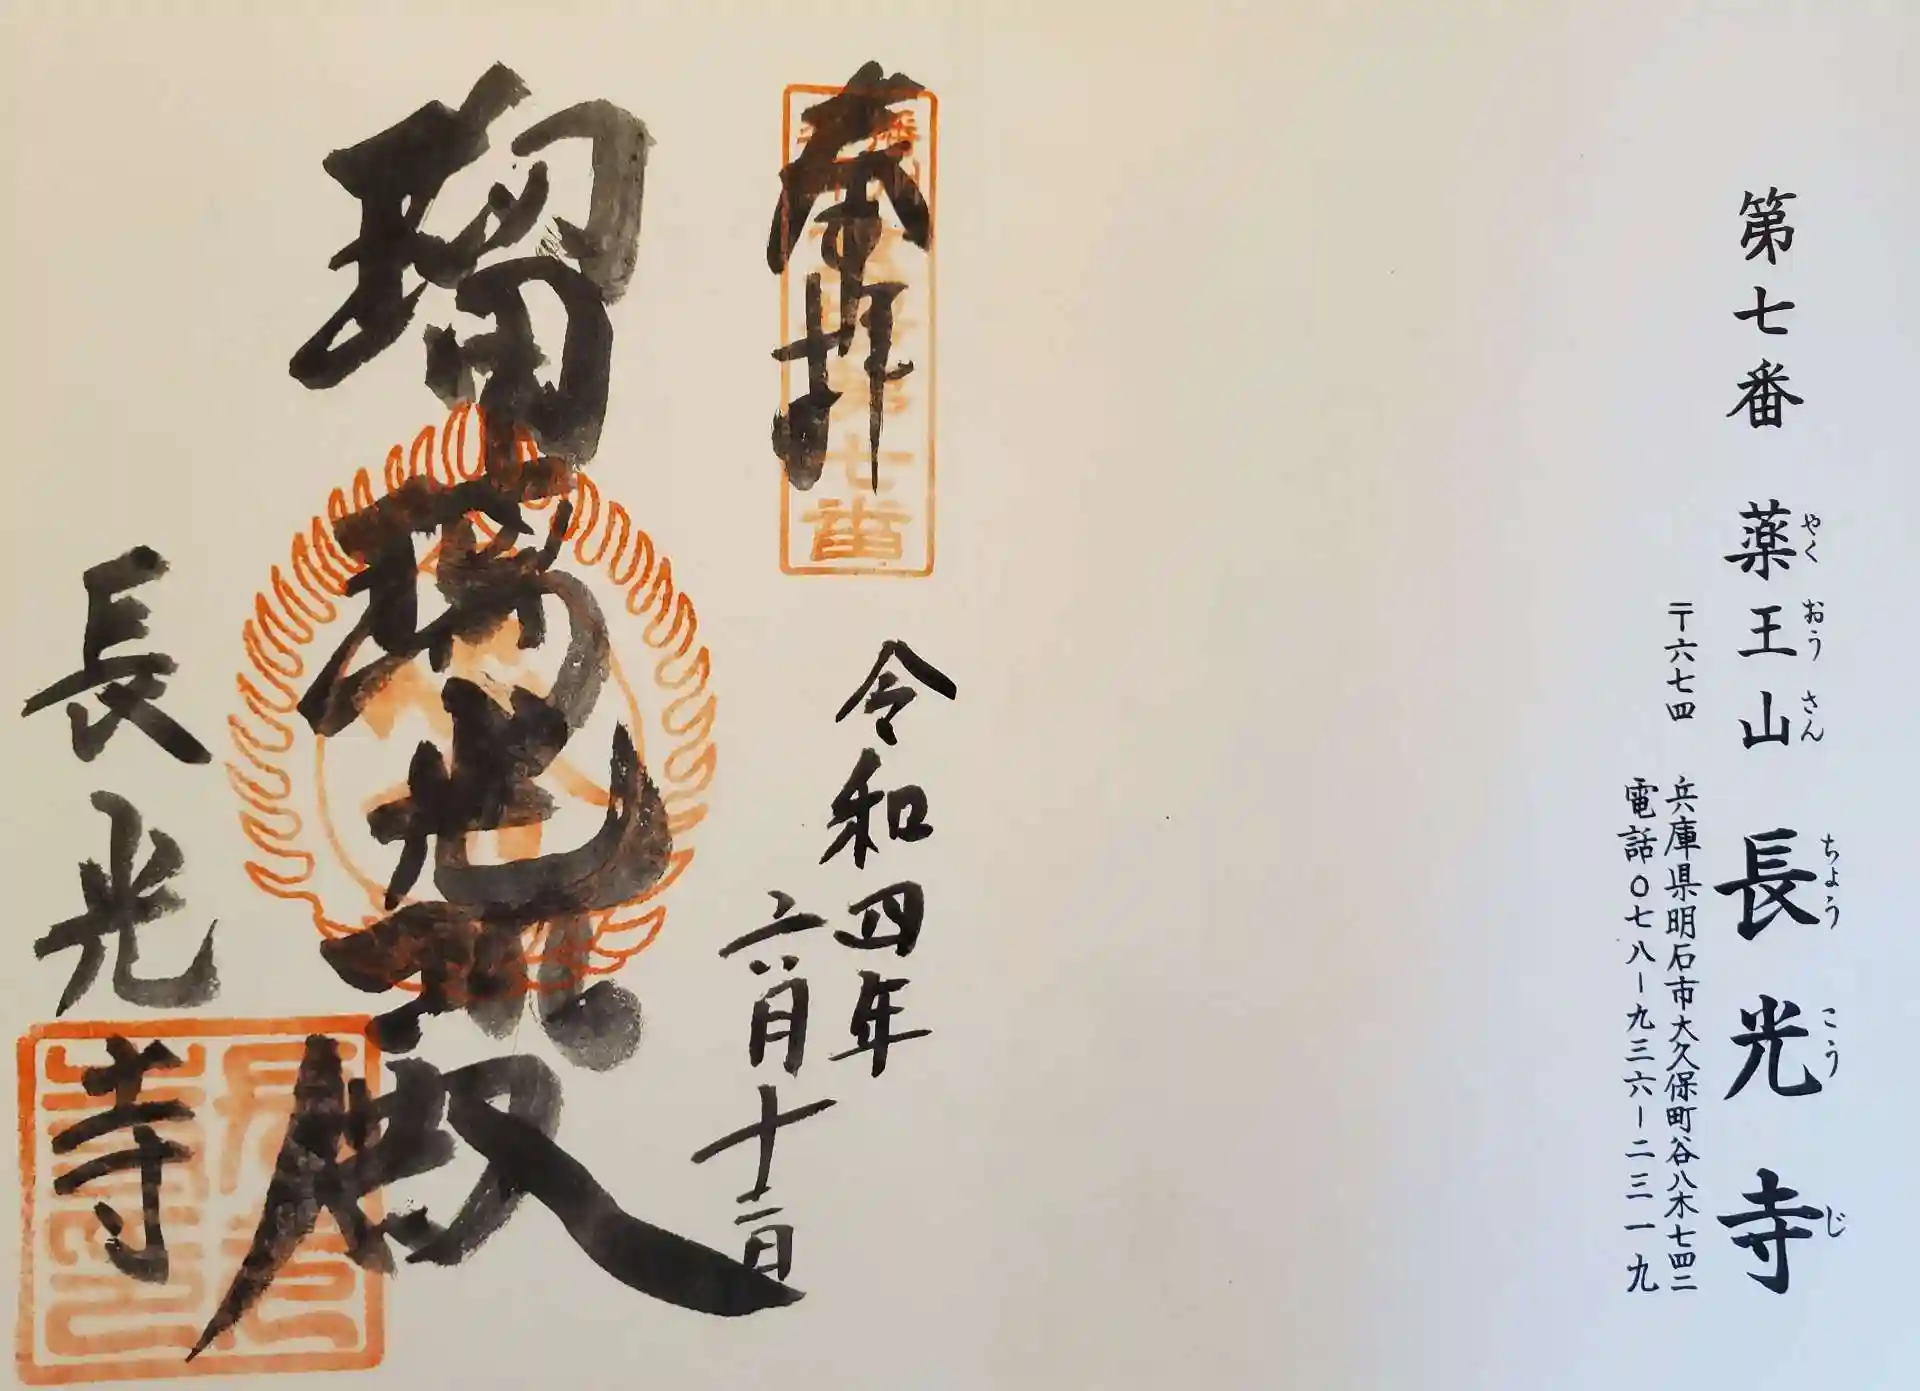 第七番 薬王山 長光寺
やく おう さん ちょう こう じ
〒六七四 兵庫県明石市大久保町谷八木七四二
電話〇七八ー九三六ー二三一九
奉拝
第七番
令和四年
六月十二日
瑠璃光殿
長光寺